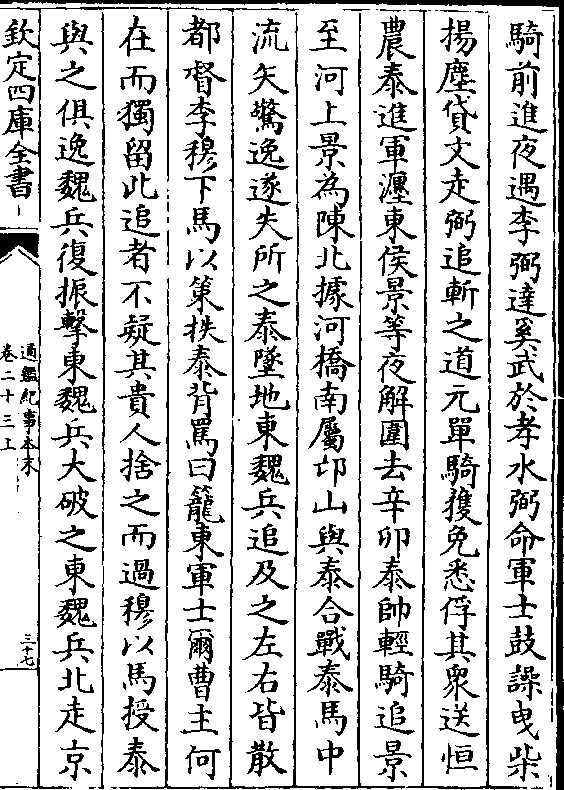 騎前進夜遇李弼達奚武於孝水弼命軍士鼓譟曳柴
揚塵貸文走弼追斬之道元單騎獲免悉俘其衆送恒
農泰進軍瀍東侯景等夜解圍去辛卯泰帥輕騎追景
至河上景為陳北據河橋南屬邙山與泰合戰泰馬中
流矢驚逸遂失所之泰墜地東魏兵追及之左右皆散
都督李穆下馬以策抶泰背罵曰籠東軍士爾曹主何
在而獨留此追者不疑其貴人捨之而過穆以馬授泰
與之俱逸魏兵復振擊東魏兵大破之東魏兵北走京
欽定四庫全書
通鑑紀事本末
卷二十三上
三十七